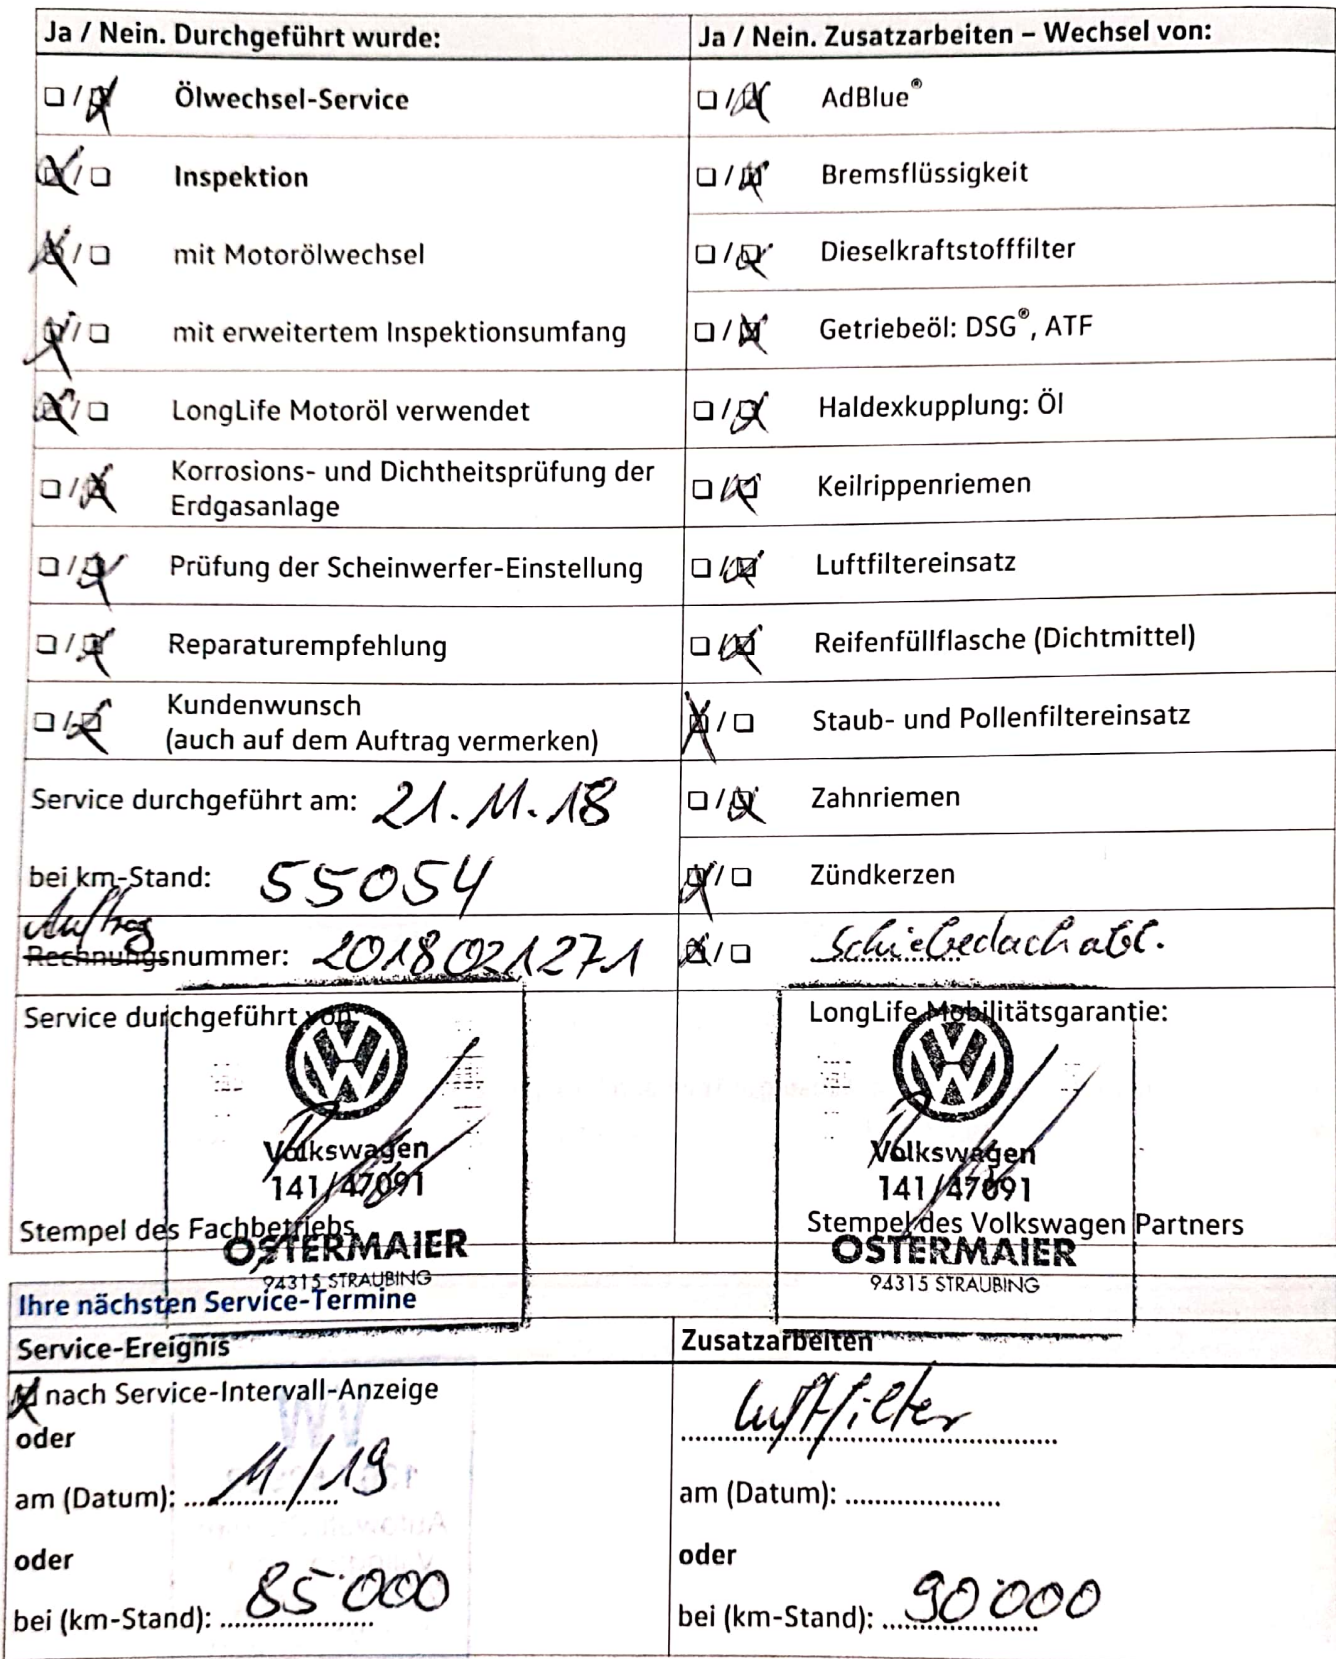 Ja / Nein. Durchgeführt wurde:
Ölwechsel-Service
Inspektion
mit Motorölwechsel
mit erweitertem Inspektionsumfang
LongLife Motoröl verwendet
Korrosions- und Dichtheitsprüfung der
Erdgasanlage
Prüfung der Scheinwerfer-Einstellung
Reparaturempfehlung
Kundenwunsch
(auch auf dem Auftrag vermerken)
Service durchgeführt am: 21.11.18
bei km-Stand: 55054
Auftrag
Rechnungsnummer: 2018021271
Service durchgeführt von:
Volkswagen
141/47091
Stempel des Fachbetriebs
OSTERMAIER
94315 STRAUBING
Ja / Nein. Zusatzarbeiten – Wechsel von:
AdBlue®
Bremsflüssigkeit
Dieselkraftstofffilter
Getriebeöl: DSG®, ATF
Haldexkupplung: Öl
Keilrippenriemen
Luftfiltereinsatz
Reifenfüllflasche (Dichtmittel)
Staub- und Pollenfiltereinsatz
Zahnriemen
Zündkerzen
Schiebedach
LongLife Mobilitätsgarantie:
Volkswagen
141/47091
Stempel des Volkswagen Partners
OSTERMAIER
94315 STRAUBING
Ihre nächsten Service-Termine
Service-Ereignis
nach Service-Intervall-Anzeige
oder
am (Datum): 11/19
oder
bei (km-Stand): 85000
Zusatzarbeiten
Luftfilter
am (Datum): ....................
oder
bei (km-Stand): 90000